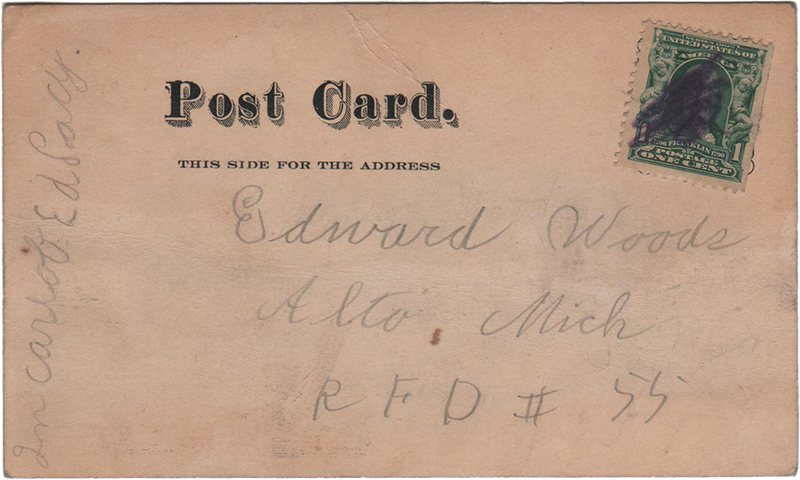 Post Card.
THIS SIDE FOR THE ADDRESS
SERIES 1902
UNITED STATES OF
AMERICA
FRANKLIN 1790
POSTAGE
1
ONE CENT
Edward Woods
Alto, Mich
R F D # 55
In car of Ed